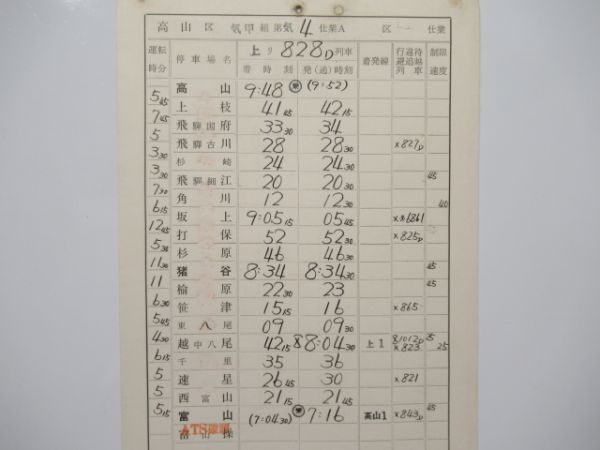 高山区 気甲組第気4仕業A 区 仕業
運転時分 停車場名 上り828D列車 着発線 行違待避追越列車 制限速度
着時刻 発(通)時刻
高山 9:48 (9:52)
5 45 上枝 41 45 42 15
7 45 飛騨国府 33 30 34
5 飛騨古川 28 28 30 ×827D
3 30 杉崎 24 24 30
3 30 飛騨細江 20 20 30 45
7 30 角川 12 12 30 40
6 15 坂上 9:05 15 05 45
12 45 打保 52 52 30 ×825D
5 30 杉原 46 46 30
11 30 猪谷 8:34 8:34 30 45
11 楡原 22 30 23 45
6 30 笹津 15 15 16 ×865
5 45 東八尾 09 09 30
4 30 越中八尾 42 15 8:04 30 上1 ×823 25
6 15 千里 35 36
5 速星 26 45 30 ×821
5 西富山 21 15 21 45
5 15 富山 (7:04 30) 7:16 高山1 ×843D 45
富山操